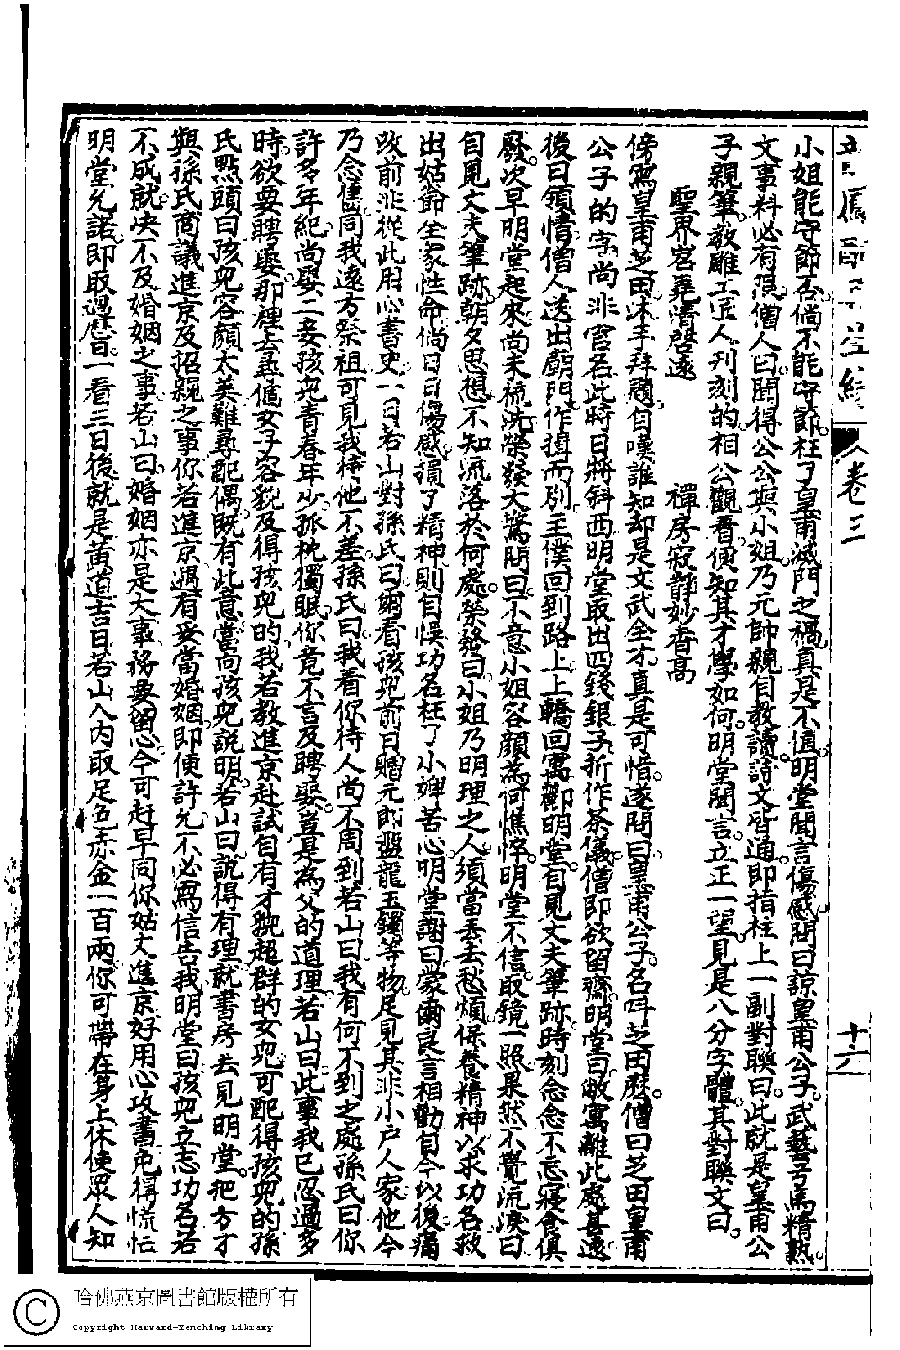 卷三
十六
小姐能守節否倘不能守節枉了皇甫滅門之禍真是不值明堂聞言傷感問曰諒皇甫公子武藝弓馬精熟
文事料必有限僧人曰聞得公公與小姐乃元帥親自教讀詩文皆通即指柱上一副對聯曰此就是皇甫公
子親筆教雕工匠人刊刻的相公觀看便知其才學如何明堂聞言立正一望見是八分字體其對聯文曰
聖界宮堯清磬遠　禪房寂靜妙香高
傍寫皇甫芝田沐手拜題自嘆誰知却是文武全才真是可惜遂問曰皇甫公子名叫芝田麽僧曰芝田皇甫
公子的字尚非官名此時日將斜西明堂取出四錢銀子折作茶儀僧即欲留齋明堂曰敝寓離此處甚遠
後日領情僧人送出廟門作揖而別主僕回到路上上轎回寓鄺明堂自見丈夫筆跡時刻念念不忘寢食俱
廢次早明堂起來尚未梳洗榮發大驚問曰不意小姐容顏為何憔悴明堂不信取鏡一照果然不覺流淚曰
自見丈夫筆跡朝夕思想不知流落於何處榮發曰小姐乃明理之人須當丟去愁煩保養精神以求功名救
出姑爺全家性命倘日日傷感損了精神則自悞功名枉了小婢苦心明堂謝曰蒙爾良言相勸自今以後痛
改前非從此用心書史一日若山對孫氏曰爾看孩兒前日贈元郎盤龍玉鐲等物足見其非小戶人家他今
乃念情同我遠方祭祖可見我待他不差孫氏曰我看你待人尚不周到若山曰我有何不到之處孫氏曰你
許多年紀尚娶二妾孩兒青春年少孤枕獨眠你竟不言及聘娶豈是為父的道理若山曰此事我已忍過多
時欲要聘娶那裡去尋個女子容貌及得孩兒的我若教進京赴試自有才貌超群的女兒可配得孩兒的孫
氏點頭曰孩兒容顏太美難尋配偶既有此意當向孩兒說明若山曰說得有理就書房去見明堂把方才
與孫氏商議進京及招親之事你若進京遇有妥當婚姻即便許允不必寫信告我明堂曰孩兒立志功名若
不成就決不及婚姻之事若山曰婚姻亦是大事務要留心今可赶早同你姑丈進京好用心攻書免得慌忙
明堂允諾即取過曆日一看三日後就是黃道吉日若山入內取足五赤金一百兩你可帶在身上休使眾人知
哈佛燕京圖書館版權所有
Copyright Harvard-Yenching Library